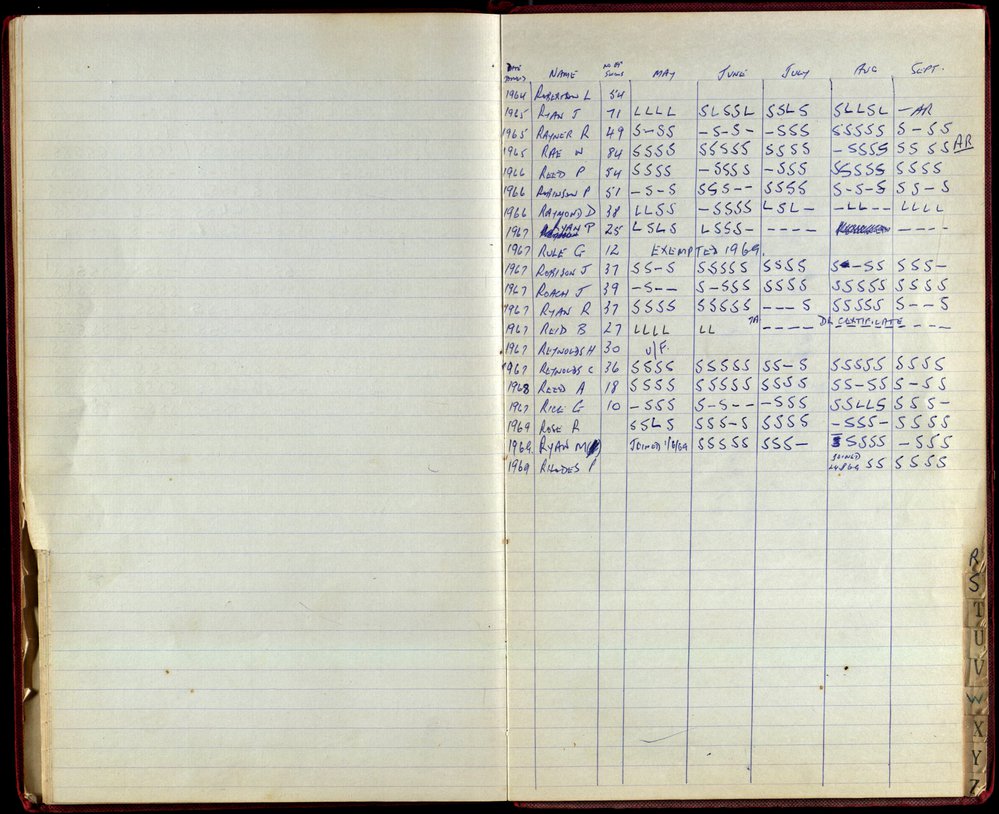 DATE JOINED NAME NO OF SWIMS MAY JUNE JULY AUG SEPT.
1964 ROBERTSON L 54
1965 RYAN J 71 LLLL SLSSL SSLS SLLSL -AR
1965 RAYNER R 49 S-SS -S-S- -SSS SSSSS S-SS
1965 RAE W 84 SSSS SSSSS SSSS -SSSS SSSS AR
1966 REED P 54 SSSS -SSSS -SSS SSSSS SSSS
1966 ROBINSON P 51 -S-S SSS-- SSSS S-S-S SS-S
1966 RAYMOND D 38 LLSS -SSSS LSL- -LL-- LLLL
1967 RYAN P 25 LSLS LSSS- ---- ----
1967 RULE G 12 EXEMPTED 1969.
1967 ROBISON J 37 SS-S SSSSS SSSS S--SS SSS-
1967 ROACH J 39 -S-- S-SSS SSSS SSSSS SSSS
1967 RYAN R 37 SSSS SSSSS ---S SSSSS S--S
1967 REID B 27 LLLL LL ---- DR CERTIFICATE ---
1967 REYNOLDS H 30 U/F.
1967 REYNOLDS C 36 SSSS SSSSS SS-S SSSSS SSSS
1968 REED A 18 SSSS SSSSS SSSS SS-SS S-SS
1967 RICE G 10 -SSS S-S-- -SSS SSLLS SSS-
1969 ROSE R SSLS SSS-S SSSS -SSS- SSSS
1969. RYAN M JOINED 1/6/69 SSSSS SSS- SSSSS -SSS
1969 RHODES P JOINED SS SSSS
R
S
T
U
V
W
X
Y
Z